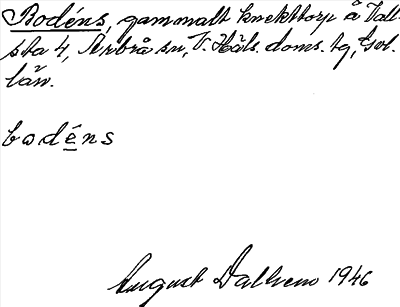 Bodéns, gammalt knekttorp å Vall-
sta 4, Arbrå sn, V. Häls. doms. tg, Gvl.
län.
bodéns
August Dalheno 1946